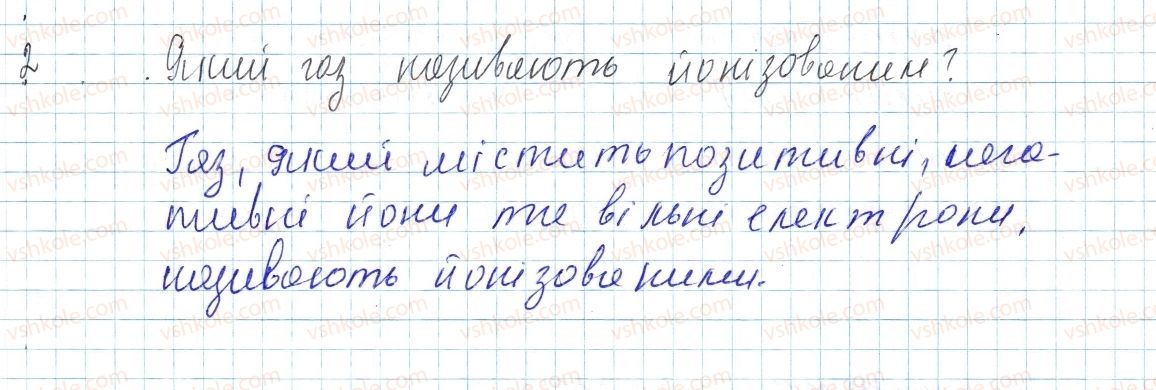 2 . Який газ називають йонізованим?
Газ, який містить позитивні, нега-
тивні йони та вільні електрони,
називають йонізованими.